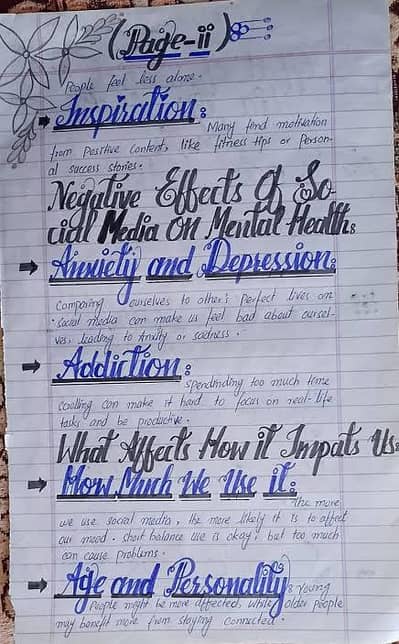 (Page-ii)
People feel less alone.
Inspiration:
Many find motivation
from Positive content, like fitness tips or Person-
al success stories.
Negative Effects Of So-
cial Media On Mental Health:
Anxiety and Depression:
Comparing ourselves to other's perfect lives on
social media can make us feel bad about oursel-
ves, leading to Anxity or sadness.
Addiction:
Spendinding too much time
scrolling can make it hard to focus on real-life
tasks and be productive.
What Affects How it Impats Us:
How Much We Use it:
The more
we use social media, the more likely it is to affect
our mood. Short balance use is okay, but too much
can cause problems.
Age and Personality:
Young
People might be more affected, while older people
may benefit more from staying connected.